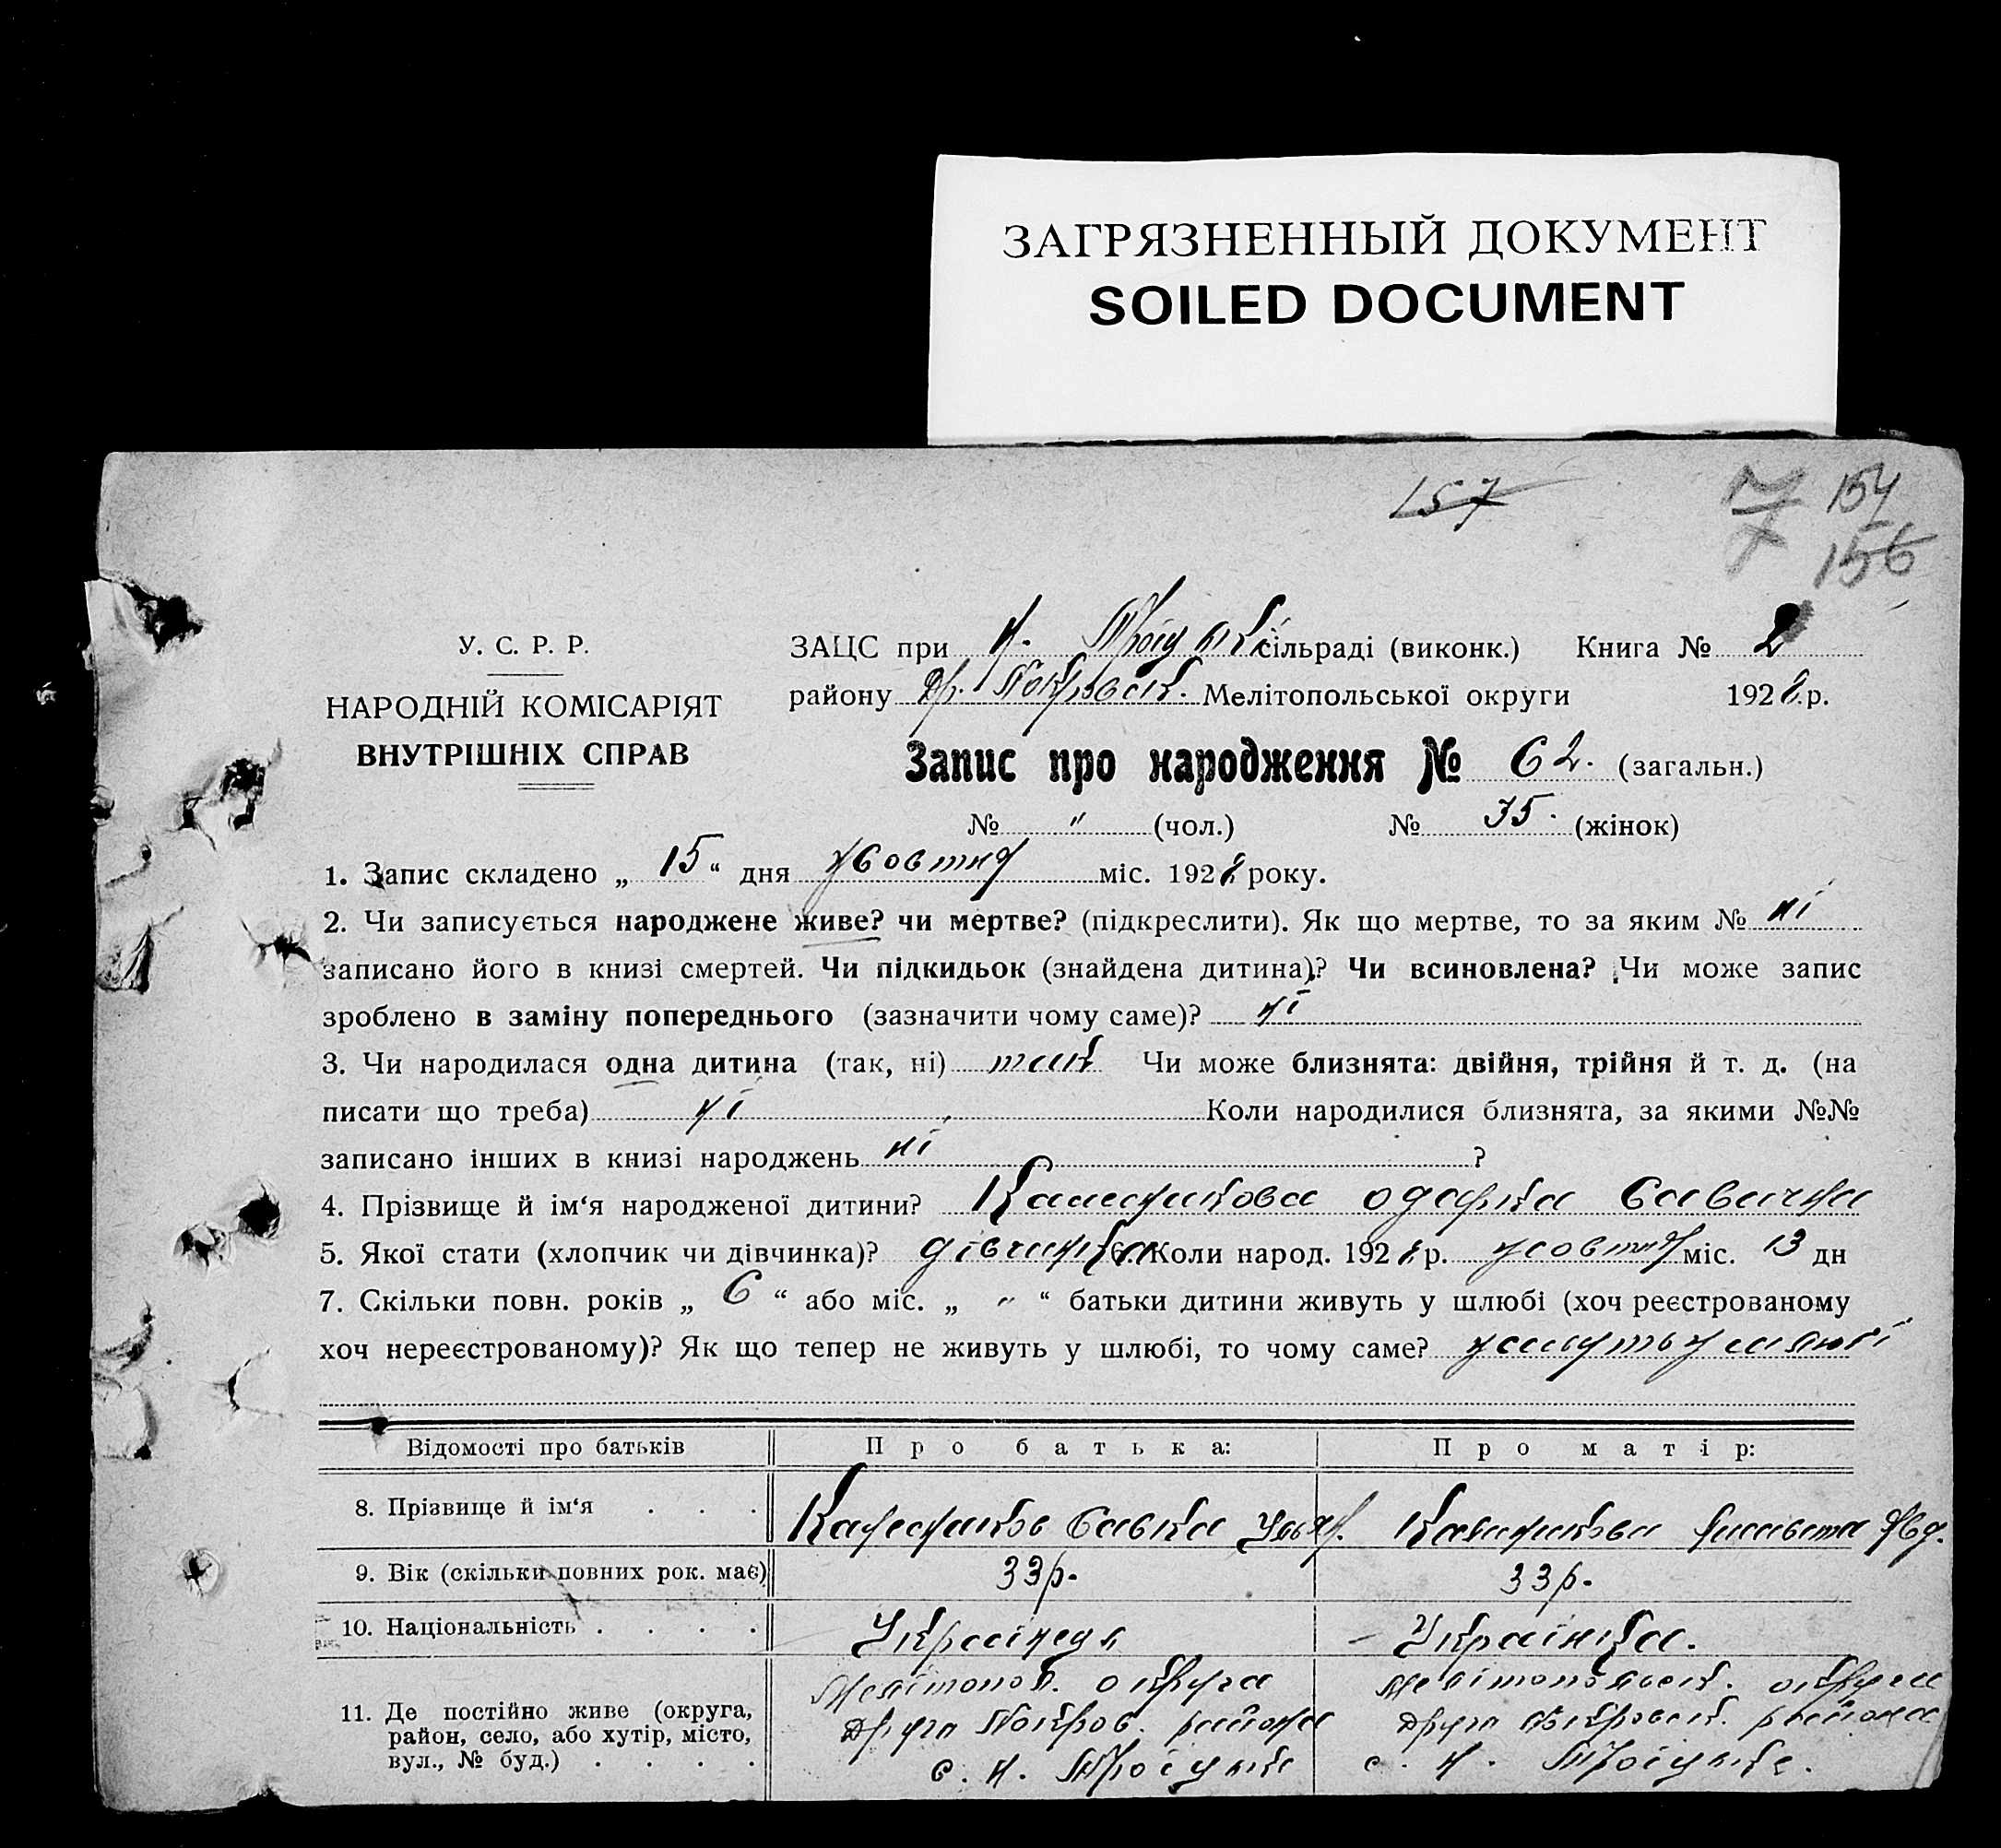 ЗАГРЯЗНЕННЫЙ ДОКУМЕНТ
SOILED DOCUMENT
157
154
156
У. С. Р. Р.
НАРОДНІЙ КОМІСАРІЯТ
ВНУТРІШНІХ СПРАВ
ЗАЦС при Н. Троіцькій сільраді (виконк.) Книга № 2
району Др. Покровськ. Мелітопольської округи 1928 р.
Запис про народження № 62. (загальн.)
№ " (чол.) № 35. (жінок)
1. Запис складено „ 15 “ дня жовтня міс. 1928 року.
2. Чи записується народжене живе? чи мертве? (підкреслити). Як що мертве, то за яким № ні
записано його в книзі смертей. Чи підкидьок (знайдена дитина)? Чи всиновлена? Чи може запис
зроблено в заміну попереднього (зазначити чому саме)? ні
3. Чи народилася одна дитина (так, ні) так Чи може близнята: двійня, трійня й т. д. (на
писати що треба) ні Коли народилися близнята, за якими №№
записано інших в книзі народжень ні ?
4. Прізвище й ім‘я народженої дитини? Одарка Савична
5. Якої стати (хлопчик чи дівчинка)? дівчинка 6. Коли народ. 1928 р. жовтня міс. 13 дн
7. Скільки повн. років „ 6 “ або міс. „ " “ батьки дитини живуть у шлюбі (хоч реєстрованому
хоч нереєстрованому)? Як що тепер не живуть у шлюбі, то чому саме? живуть у шлюбі
Відомості про батьків Про батька: Про матір:
8. Прізвище й ім‘я . . . Савка
9. Вік (скільки повних рок. має) 33 р. 33 р.
10. Національність . . . . Українець Українка.
11. Де постійно живе (округа, район, село, або хутір, місто, вул., № буд.) . . . .
Мелітопол. округа
Друго Покров. района
с. Н. Троіцьке
Мелітопольськ. округи
Друго Покровськ. района
с. Н. Троіцьке.